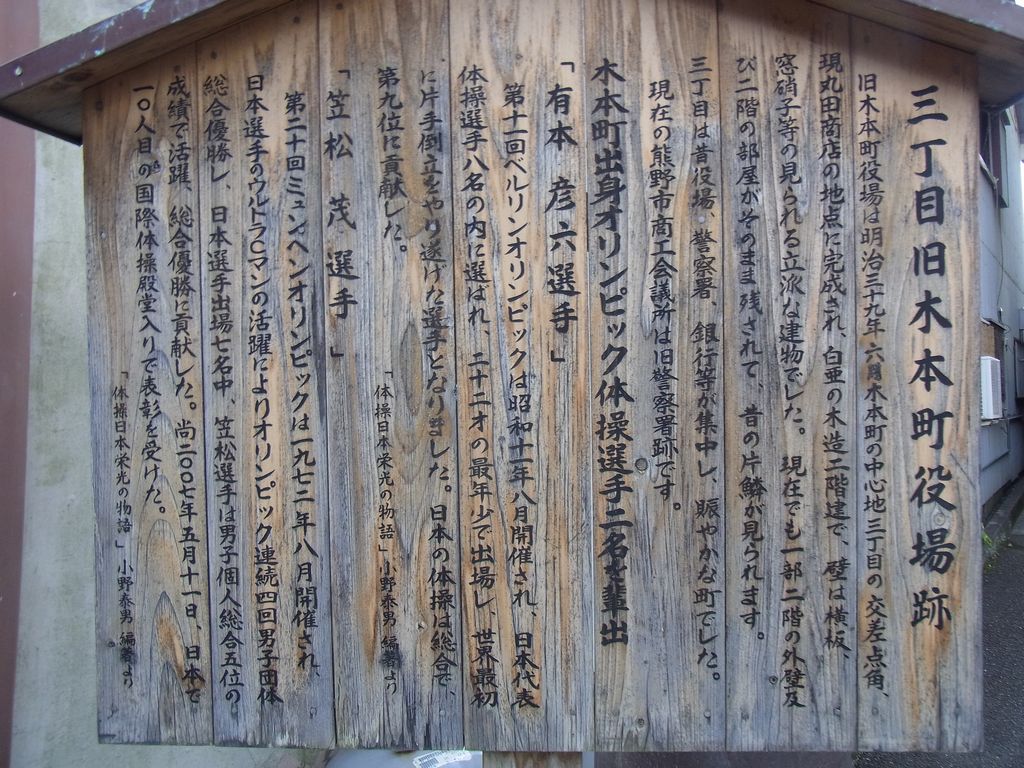 三丁目旧木本町役場跡
旧木本町役場は明治三十九年六月木本町の中心地三丁目の交差点角、
現丸田商店の地点に完成され、白亜の木造二階建で、壁は横板、
窓硝子等の見られる立派な建物でした。現在でも一部二階の外壁及
び二階の部屋がそのまま残されて、昔の片鱗が見られます。
三丁目は昔役場、警察署、銀行等が集中し、賑やかな町でした。
現在の熊野市商工会議所は旧警察署跡です。
木本町出身オリンピック体操選手二名を輩出
「有本 彦六選手」
第十一回ベルリンオリンピックは昭和十一年八月開催され、日本代表
体操選手八名の内に選ばれ、二十二才の最年少で出場し、世界最初
に片手倒立をやり遂げた選手となりました。日本の体操は総合で、
第九位に貢献した。
「体操日本栄光の物語」小野泰男 編著より
「笠松 茂 選手」
第二十回ミュンヘンオリンピックは一九七二年八月開催され、
日本選手のウルトラCマンの活躍によりオリンピック連続四回男子団体
総合優勝し、日本選手出場七名中、笠松選手は男子個人総合五位の
成績で活躍、総合優勝に貢献した。尚二〇〇七年五月十一日、日本で
一〇人目の国際体操殿堂入りで表彰を受けた。
「体操日本栄光の物語」小野泰男 編著より